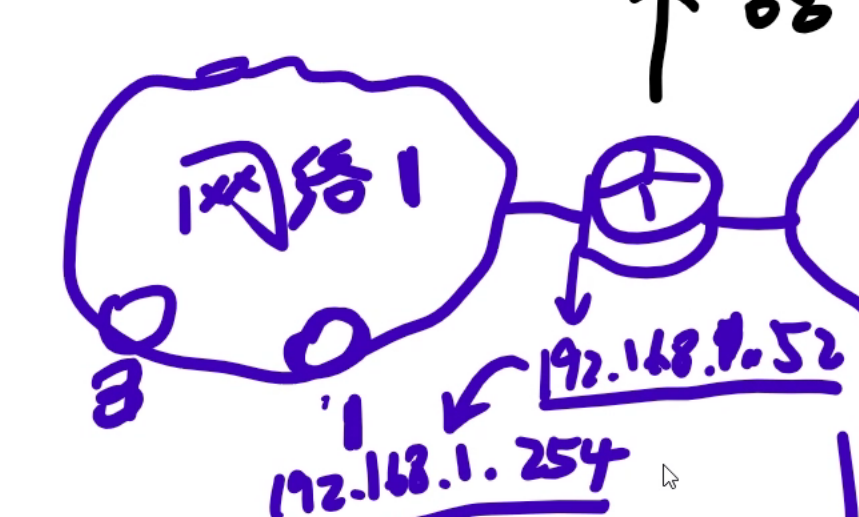 网络1
192.168.1.52
3
1
192.168.1.254